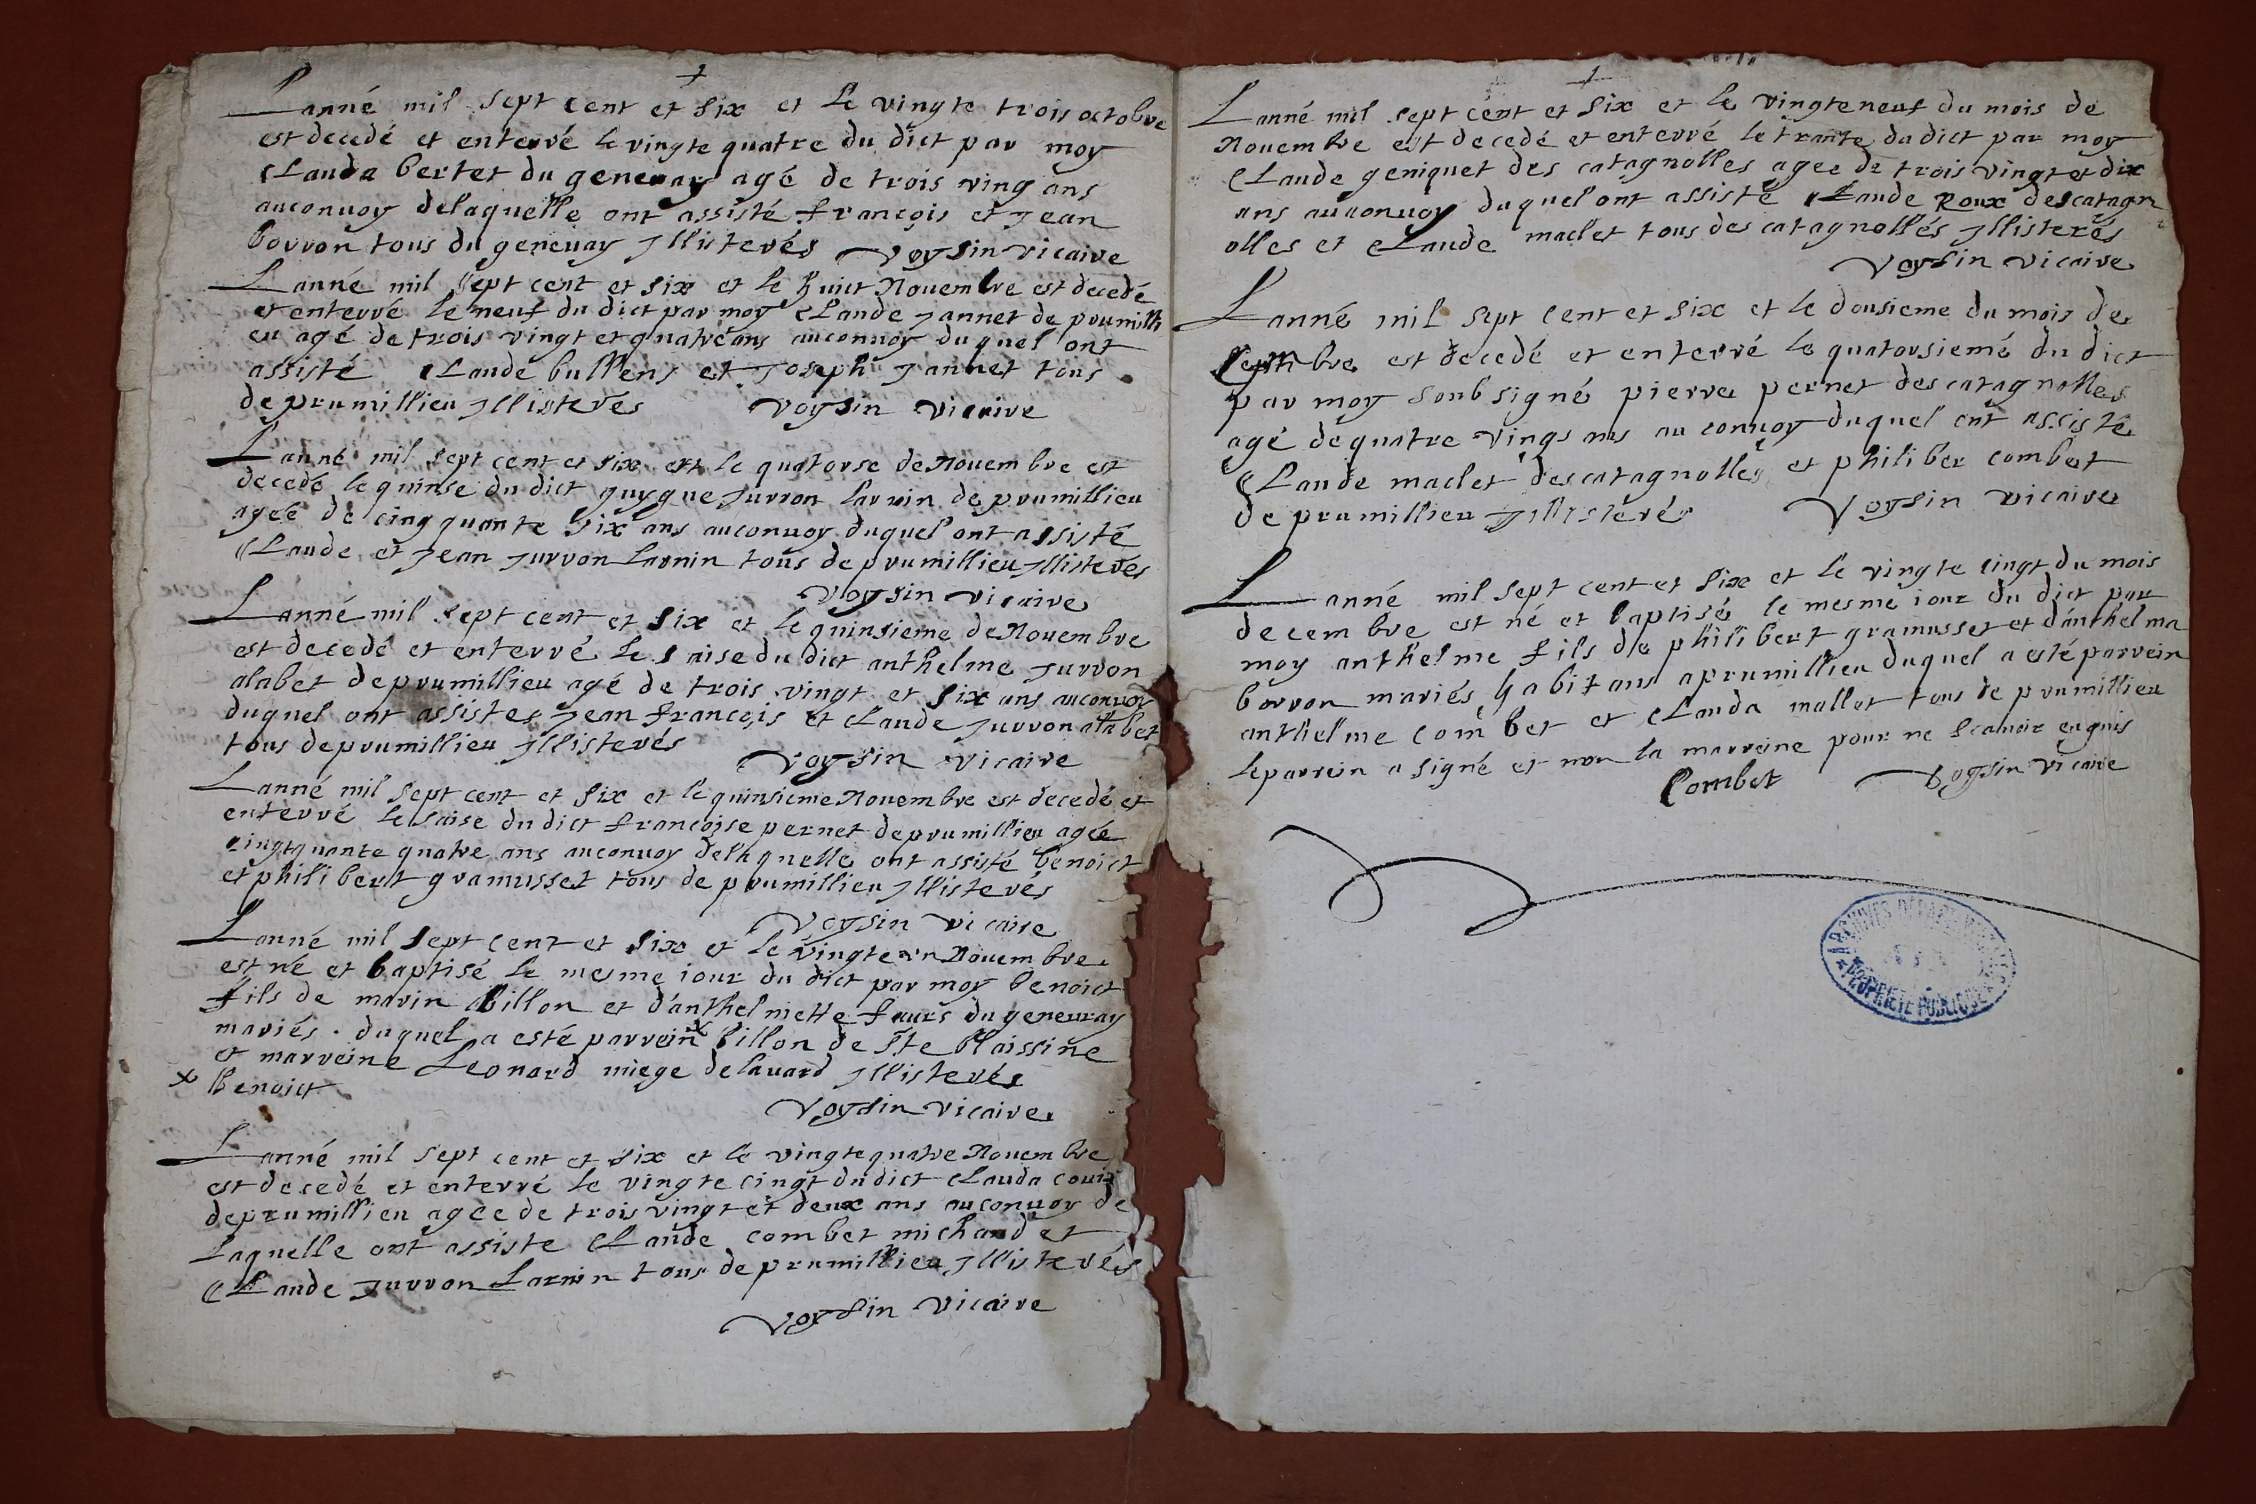 +
Lanné mil sept cent et six et le vingte trois octobre
est decedé et enterré le vingte quatre du dict par moy
Clauda bertet du genevay agé de trois ving ans
auconuoy delaquelle ont assisté françois et Jean
borron tous du genevay Jllisterés Voysin vicaire
Lanné mil sept cent et six et le huict Nouembre est decedé
et enterré le neuf du dict par moy Claude Jannet de prumilli
eu agé de trois vingt et quatre ans auconuoy duquel ont
assisté Claude bullens et Joseph Jannet tous
de prumillieu Jllisteres Voysin vicaire
Lanné mil sept cent et six et le quatorse de Nouembre est
decedé le quinse du dict guygue Jurron larnin de prumillieu
ageé de cinq quante six ans auconuoy duquel ont assisté
Claude et Jean Jurron larnin tous de prumillieu Jllisterés
Voysin vicaire
Lanné mil sept cent et six et le quinsieme de Nouembre
est decedé et enterré le saise du dict anthelme Jurron
alabet de prumillieu agé de trois vingt et six ans auconuoy
duquel ont assistes Jean françois et Claude Jurron alabet
tous de prumillieu Jllisterés Voysin vicaire
Lanné mil sept cent et six et le quinsieme Nouembre est decedé et
enterré le saise du dict françoise pernet de prumillieu agée
cingtquante quatre ans auconuoy delaquelle ont assisté benoict
et philibert gramusset tous de prumillieu Jllisterés
Voysin vicaire
Lanné mil sept cent et six et le vingte vn Nouembre
est né et baptisé le mesme iour du dict par moy benoict
fils de marin billon et d'anthelmette faurs du genevray
mariés . duquel a esté parrein x billon de ste blaissine
et marreine Leonard miege delauard Jllisterés
x benoict
Voysin vicaire
Lanné mil sept cent et six et le vingte quatre Nouembre
est decedé et enterré le vingte cingt du dict Clauda
de prumillieu agée de trois vingt et deux ans auconuoy de
laquelle ont assiste Claude combet michaud et
Claude Jurron Larnin tous de prumillieu Jllisterés
Voysin vicaire
+
Lanné mil sept cent et six et le vingteneuf du mois de
Nouembre est decedé et enterré le trante du dict par moy
Claude geniquet des catagnolles agee de trois vingt et dix
ans auconuoy duquel ont assisté Claude Roux descatagn
olles et Claude maclet tous des catagnollés Jllisterés
Voysin vicaire
Lanné mil sept cent et six et le dousieme du mois de
est decedé et enterré le quatorsiemé du dict
par moy soubsigné pierre pernet des catagnolles
agé de quatre vings ans au conuoy duquel ont assisté
Claude maclet descatagnolles et philiber combet
de prumillieu Jllisterés Voysin vicaire
Lanné mil sept cent et six et le vingte cingt du mois
decembre est né et baptisé le mesme iour du dict par
moy anthelme fils de philibert gramusset et d'anthelma
borron mariés habitans a prumillieu duquel a esté parrein
anthelme combet et Clauda mallet tous de prumillieu
le parrein a signé et non la marreine pour ne scauoir enquis
Combet Voysin vicaire
ARCHIVES DÉPARTEMENTALES
PROPRIÉTÉ PUBLIQUE